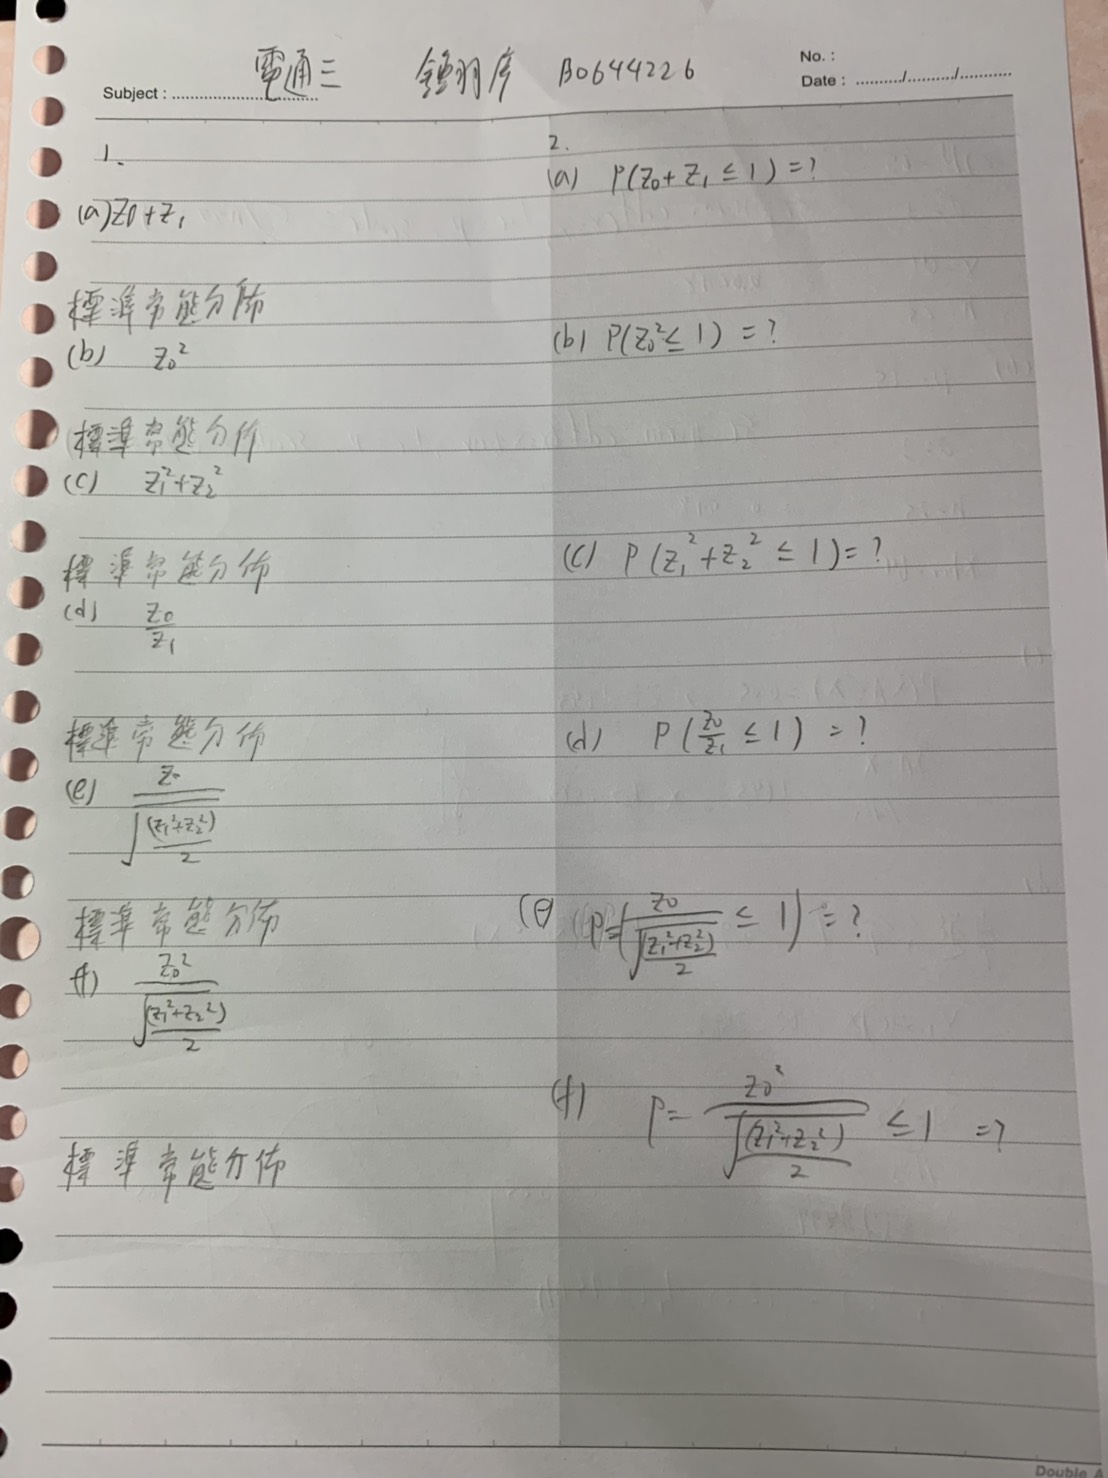 No. :
Subject : 電通三 鍾羽彥 B0644226 Date : ........../........../...........
1.
(a) Z0+Z₁
標準常態分佈
(b) Z₀²
標準常態分佈
(c) Z₁²+Z₂²
標準常態分佈
(d) Z₀/Z₁
標準常態分佈
(e) Z₀/√((Z₁²+Z₂²)/2)
標準常態分佈
(f) Z₀²/√((Z₁²+Z₂²)/2)
標準常態分佈
2.
(a) P(Z₀+Z₁ ≤ 1) = ?
(b) P(Z₀² ≤ 1) = ?
(c) P(Z₁²+Z₂² ≤ 1) = ?
(d) P(Z₀/Z₁ ≤ 1) = ?
(e) P=(Z₀/√((Z₁²+Z₂²)/2) ≤ 1) = ?
(f) P= Z₀²/√((Z₁²+Z₂²)/2) ≤ 1 = ?
Double A